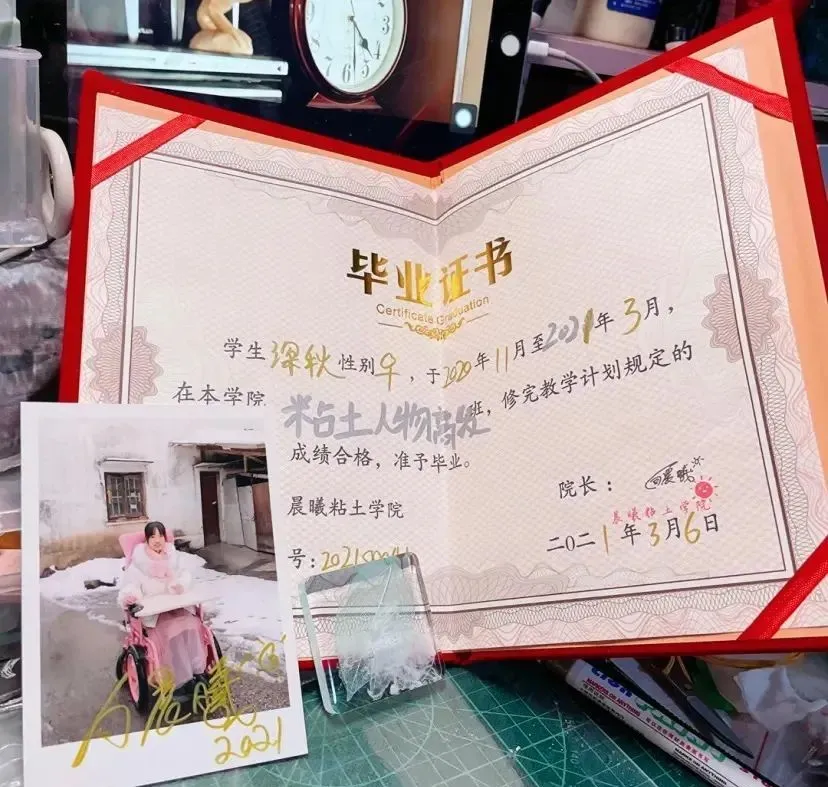 毕业证书
Certificate Graduation
学生深秋性别女,于2020年11月至2021年3月,
在本学院粘土人物高级班,修完教学计划规定的
成绩合格,准予毕业。
院长:向晨曦
晨曦粘土学院
晨曦粘土学院
二〇二1年3月6日
号:
向晨曦
2021